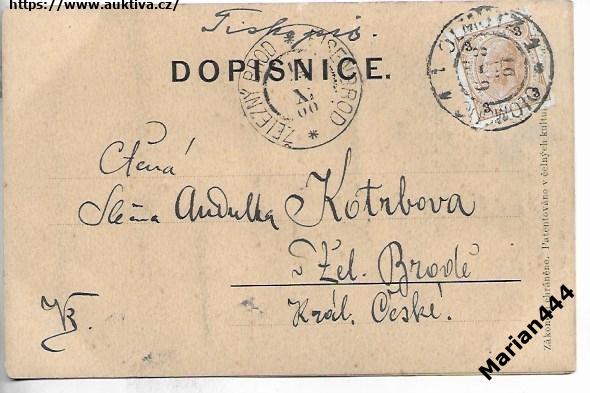 https://www.auktiva.cz/
Tiskopis.
DOPISNICE.
ŽELEZNÝ BROD * EISENBROD *
X
00
3 3
3 3
Ctěná
Slečna Andulka Kotrbova
Žel. Brodě
Král. České.
Zákon. chráněno. Patentováno v čelných kultu
Marian444